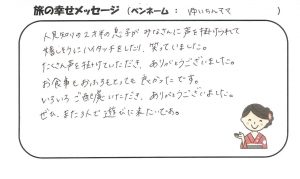 旅の幸せメッセージ（ペンネーム ： ゆいちんママ ）
人見知りの2才半の息子がみなさんに声を掛けられて
嬉しそうにハイタッチをしたり、笑っていました。
たくさん声を掛けていただき、ありがとうございました。
お食事もおふろもとっても良かったです。
いろいろご配慮いただき、ありがとうございました。
ぜひ、また3人で遊びに来たいです。